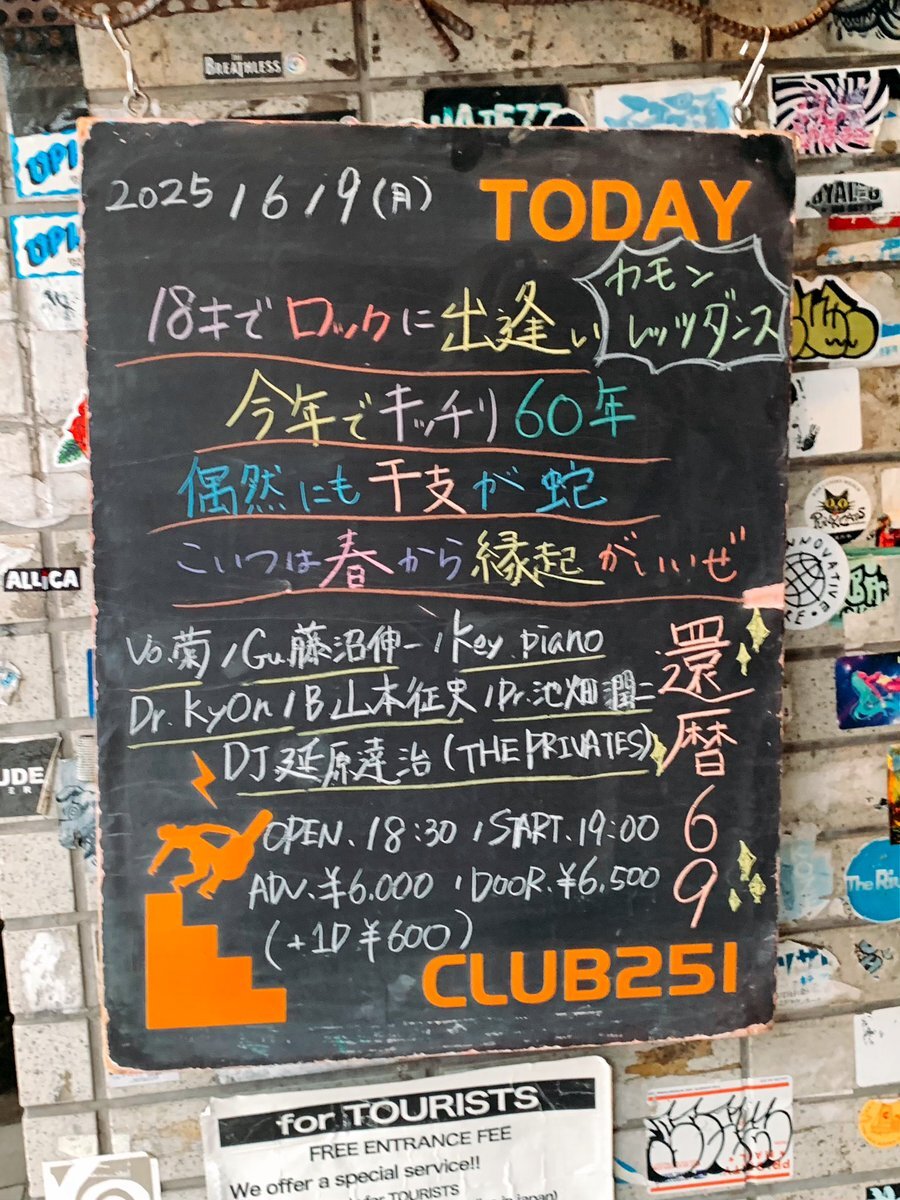 BREATHLESS
2025/6/9(月)
TODAY
カモン
レッツダンス
18才でロックに出逢い
今年でキッチリ60年
偶然にも干支が蛇
こいつは春から縁起がいいぜ
還暦69
Vo.菊/Gu.藤沼伸一/Key.piano
Dr.kyOn/B山本征史/Dr.池畑潤二
DJ延原達治(THE PRIVATES)
OPEN.18:30/START.19:00
ADV.¥6.000/DOOR.¥6.500
(+1D¥600)
CLUB251
ALLiCA
for TOURISTS
FREE ENTRANCE FEE
We offer a special service!!
for TOURISTS